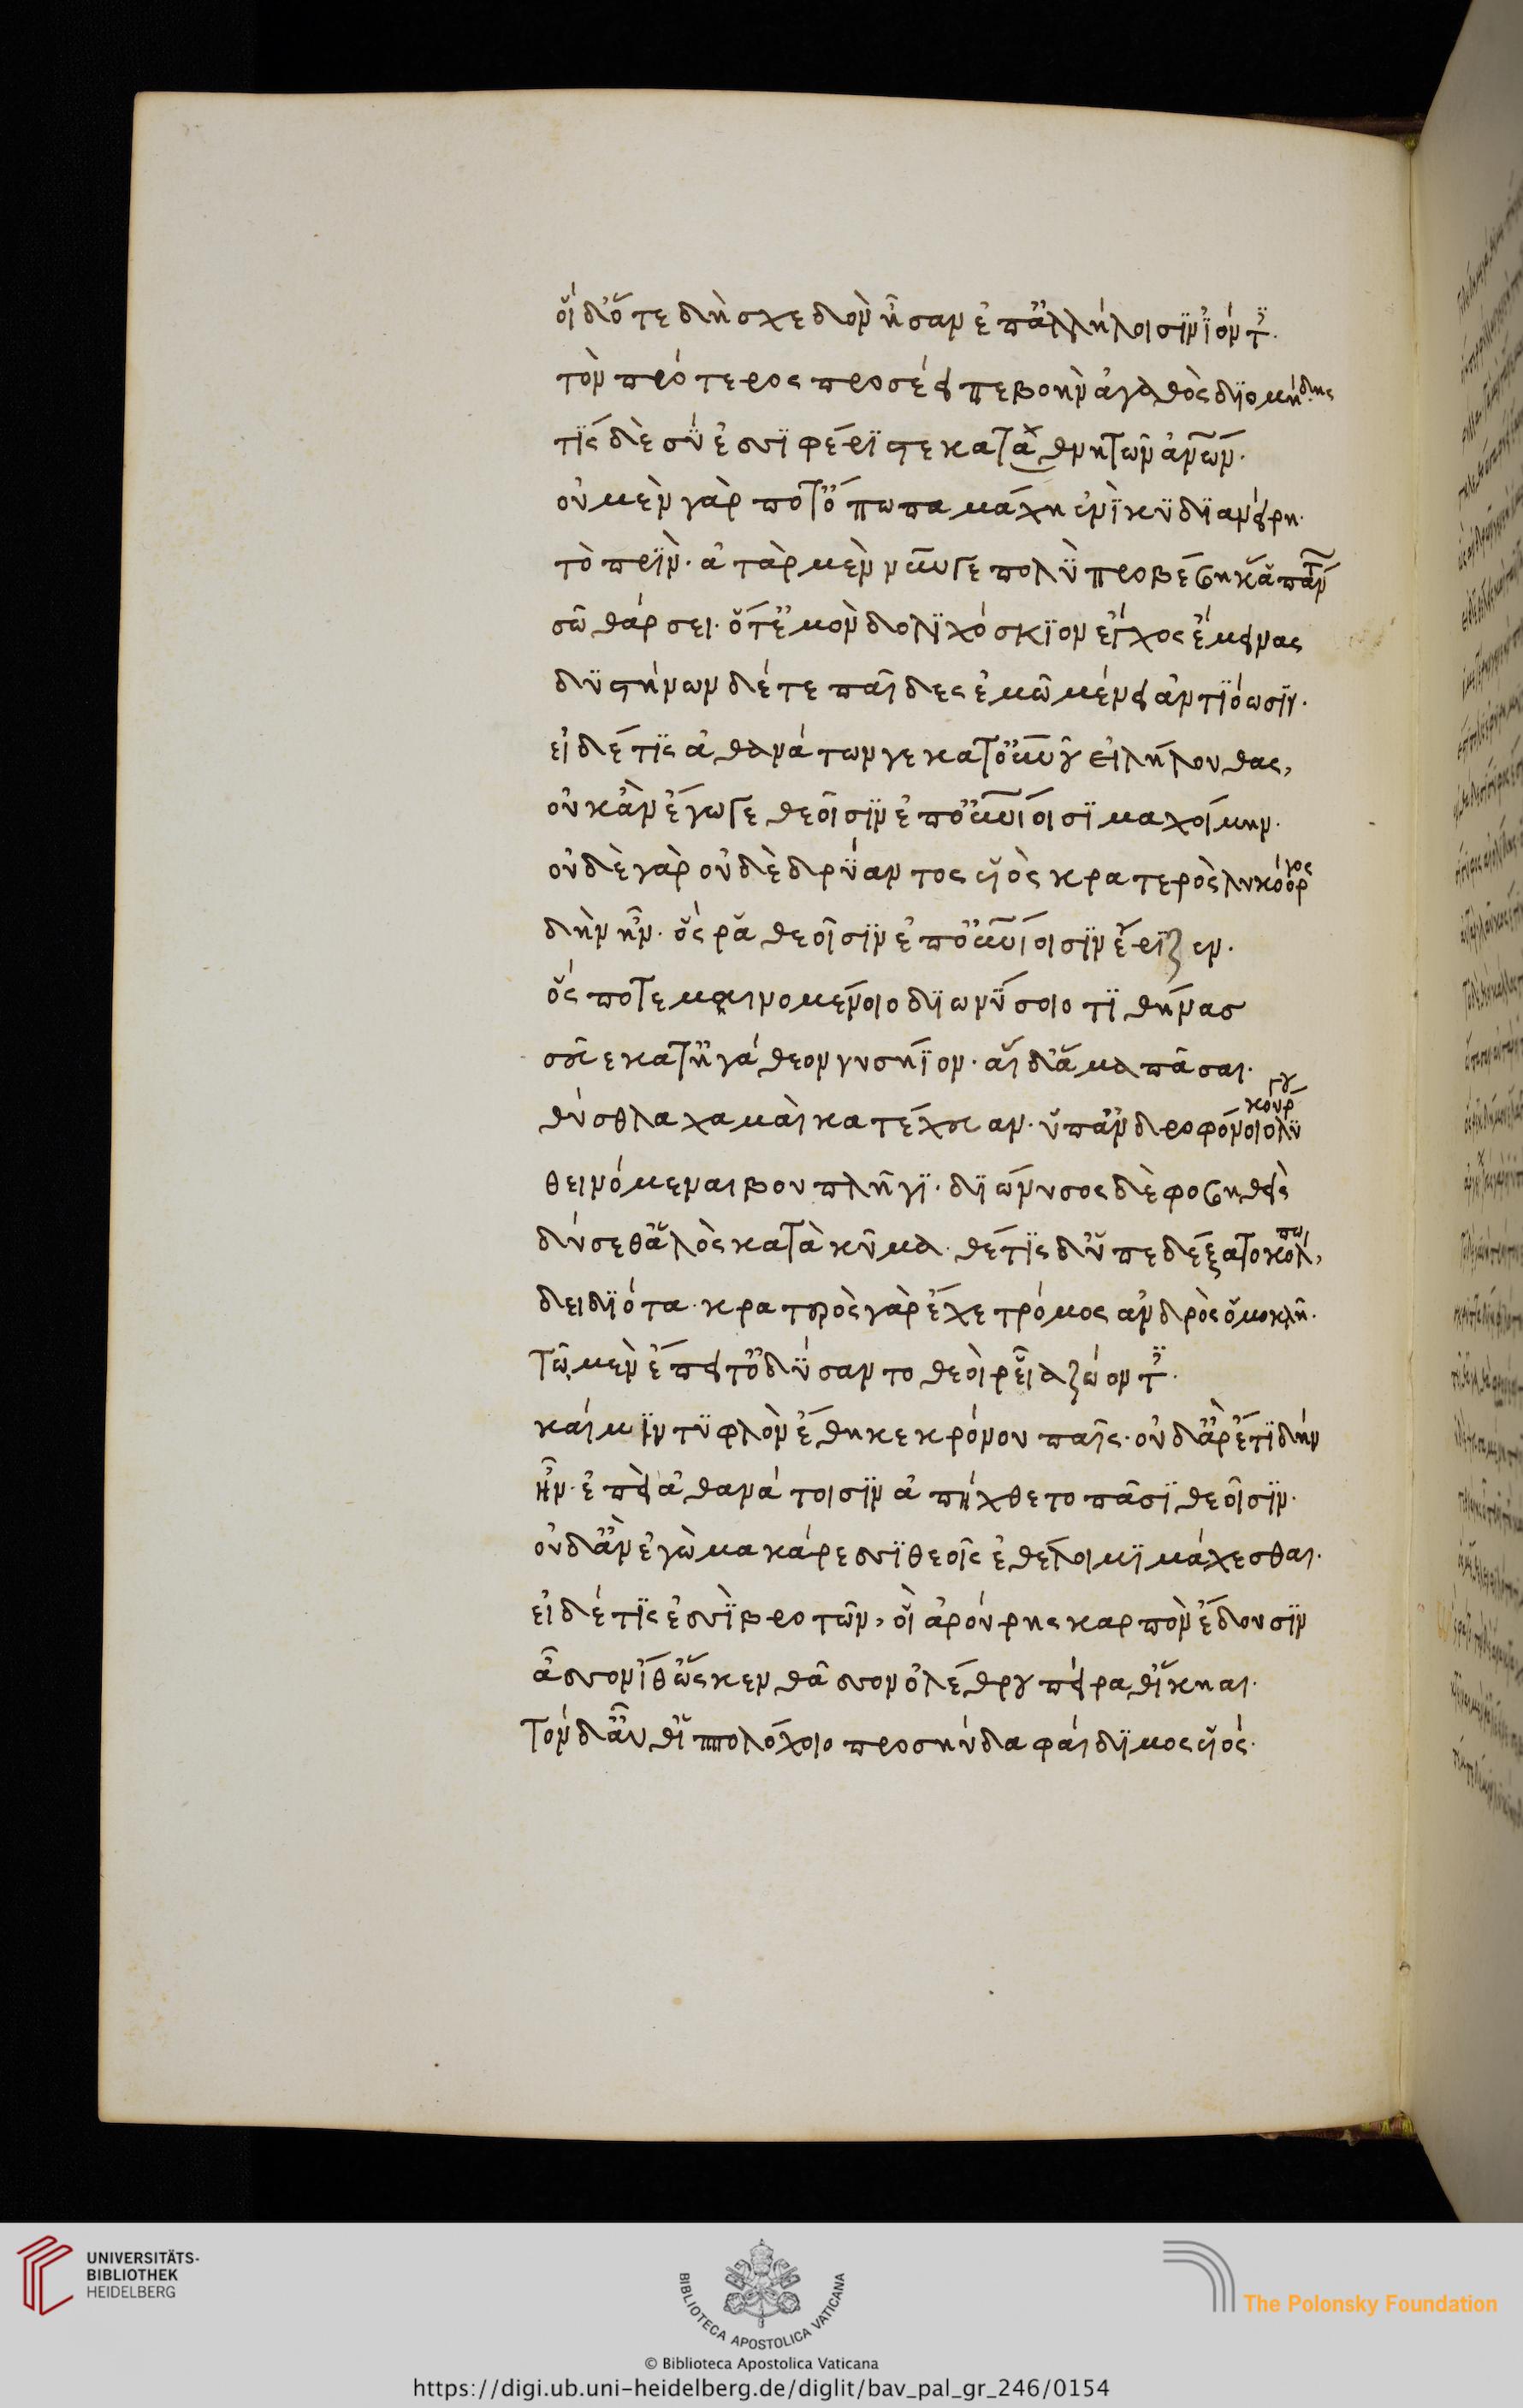 οἵ δ' ὅτε δὴ σχεδὸν ἦσαν ἐπ' ἀλλήλοισιν ἰόντες·
τὸν πρότερος προσέειπε βοὴν ἀγαθὸς διομήδης
τίς δὲ σύ ἐσσι φέριστε καταθνητῶν ἀνθρώπων·
οὐ μὲν γάρ ποτ' ὄπωπα μάχη ἐνὶ κυδιανείρη·
τὸ πρίν· ἀτὰρ μὲν νῦν γε πολὺ προβέβηκας ἁπάντων
σῶ θάρσει· ὅτ' ἐμὸν δολιχόσκιον ἔγχος ἔμεινας
δυστήνων δέ τε παῖδες ἐμῶ μένει ἀντιόωσιν·
εἰ δέ τις ἀθανάτων γε κατ' οὐρανοῦ εἰλήλουθας,
οὐκ ἂν ἔγωγε θεοῖσιν ἐπουρανίοισι μαχοίμην·
οὐδὲ γὰρ οὐδὲ δρύαντος υἱὸς κρατερὸς λυκόοργος
δὴν ἦν· ὅς ῥα θεοῖσιν ἐπουρανίοισιν ἔριζεν·
ὅς ποτε μαινομένοιο διωνύσοιο τιθήνας
σεῦε κατ' ἠγάθεον νυσήιον· αἱ δ' ἅμα πᾶσαι·
θύσθλα χαμαὶ κατέχευαν· ὑπ' ἀνδροφόνοιο λυκούργου
θεινόμεναι βουπλῆγι· διώνυσος δὲ φοβηθεὶς
δύσεθ' ἁλὸς κατὰ κῦμα· θέτις δ' ὑπεδέξατο κόλπω,
δειδιότα· κρατερὸς γὰρ ἔχε τρόμος ἀνδρὸς ὁμοκλῆ·
τῶ μὲν ἔπειτ' ὀδύσαντο θεοὶ ῥεῖα ζώοντες·
καί μιν τυφλὸν ἔθηκε κρόνου παῖς· οὐδ' ἂρ ἔτι δὴν
ἦν· ἐπεὶ ἀθανάτοισιν ἀπήχθετο πᾶσι θεοῖσιν·
οὐδ' ἂν ἐγὼ μακάρεσσι θεοῖς ἐθέλοιμι μάχεσθαι·
εἰ δέ τις ἐσσὶ βροτῶν, οἳ ἀρούρης καρπὸν ἔδουσιν
ἆσσον ἴθ' ὥς κεν θᾶσσον ὀλέθρου πείραθ' ἵκηαι·
τόν δ' αὖθ' ἱππολόχοιο προσηύδα φαίδιμος υἱός·
UNIVERSITÄTS-
BIBLIOTHEK
HEIDELBERG
BIBLIOTECA APOSTOLICA VATICANA
The Polonsky Foundation
© Biblioteca Apostolica Vaticana
https://digi.ub.uni-heidelberg.de/diglit/bav_pal_gr_246/0154